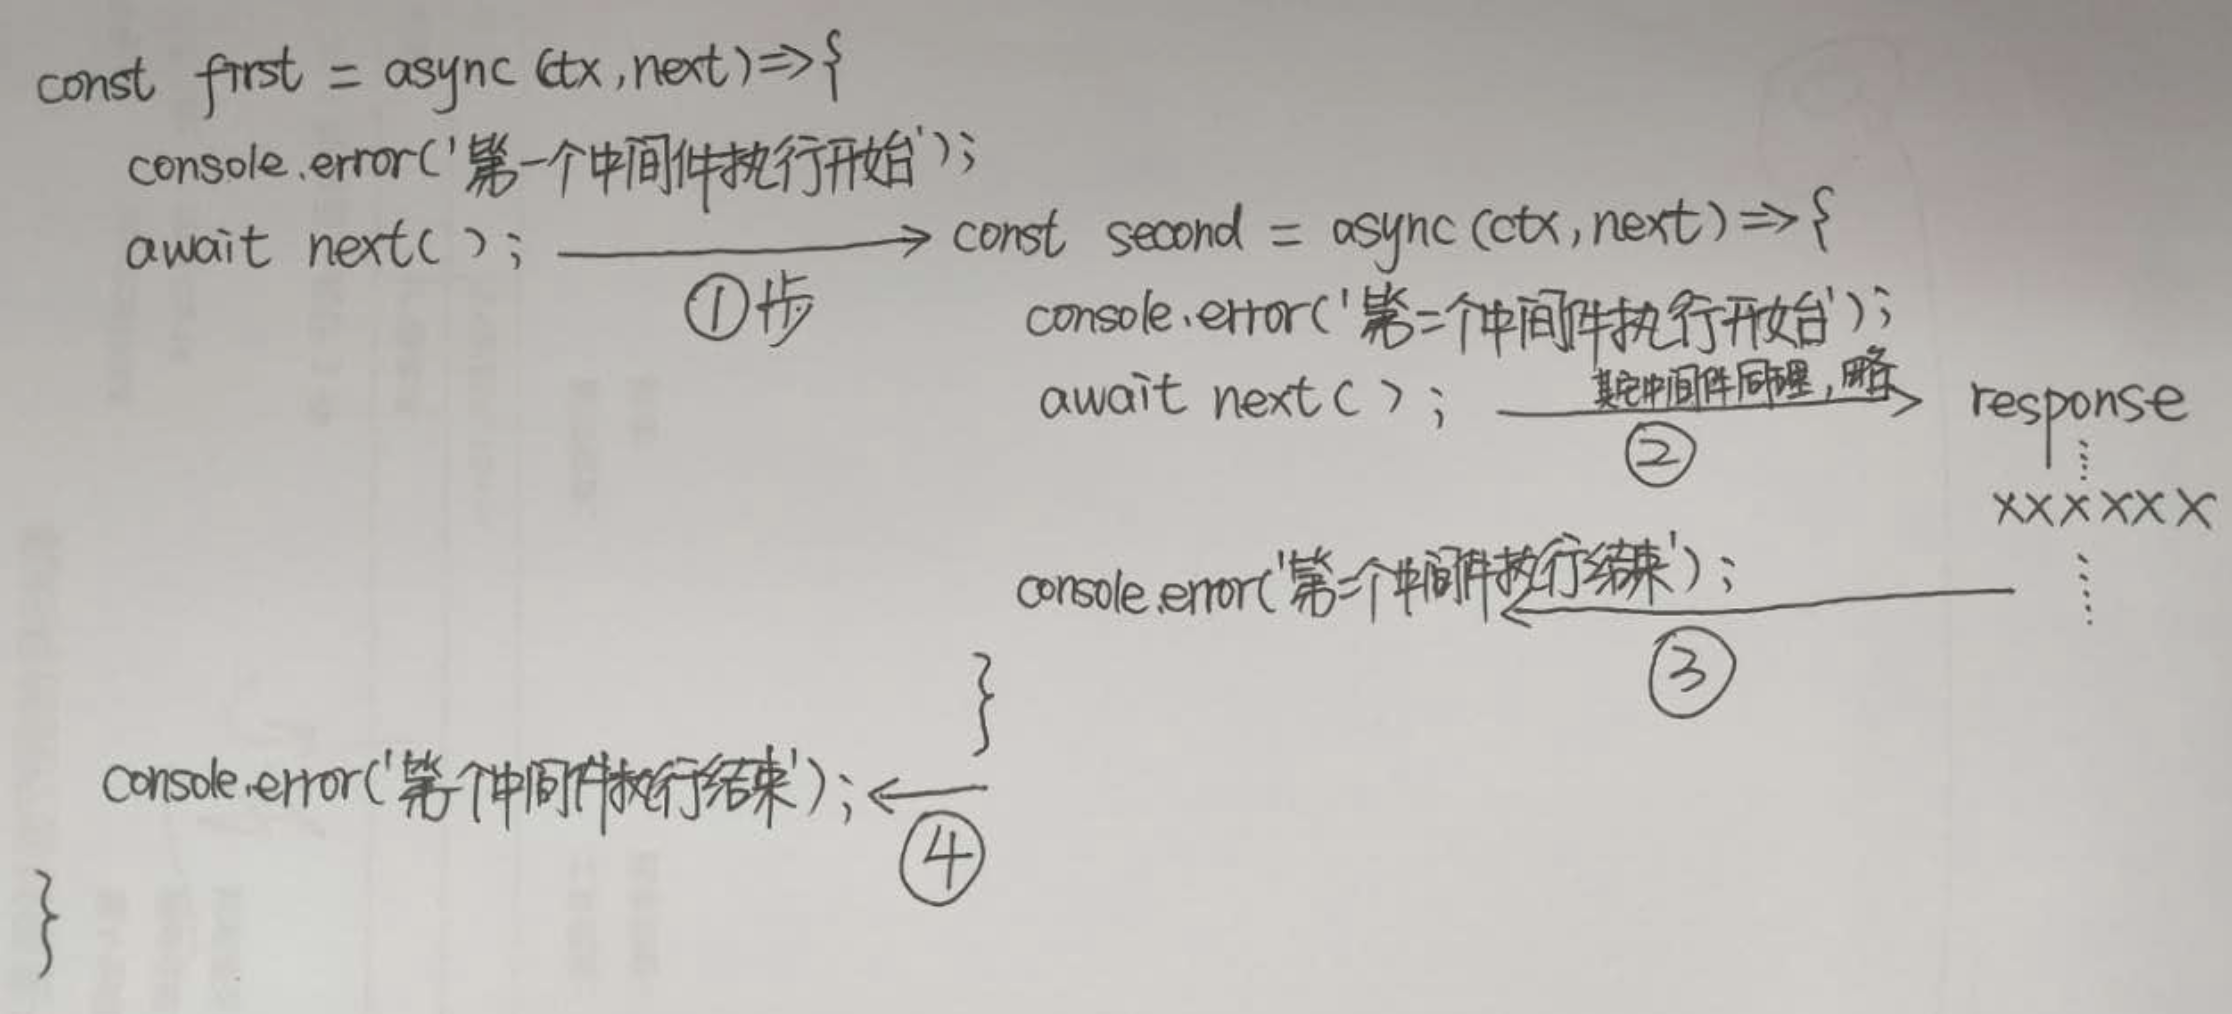 const first = async (ctx, next) => {
console.error('第一个中间件执行开始');
await next( );
①步
const second = async (ctx, next) => {
console.error('第二个中间件执行开始');
await next( );
其它中间件同理，略
②
response
xxxxxx
console.error('第二个中间件执行结束');
③
}
console.error('第一个中间件执行结束');
④
}